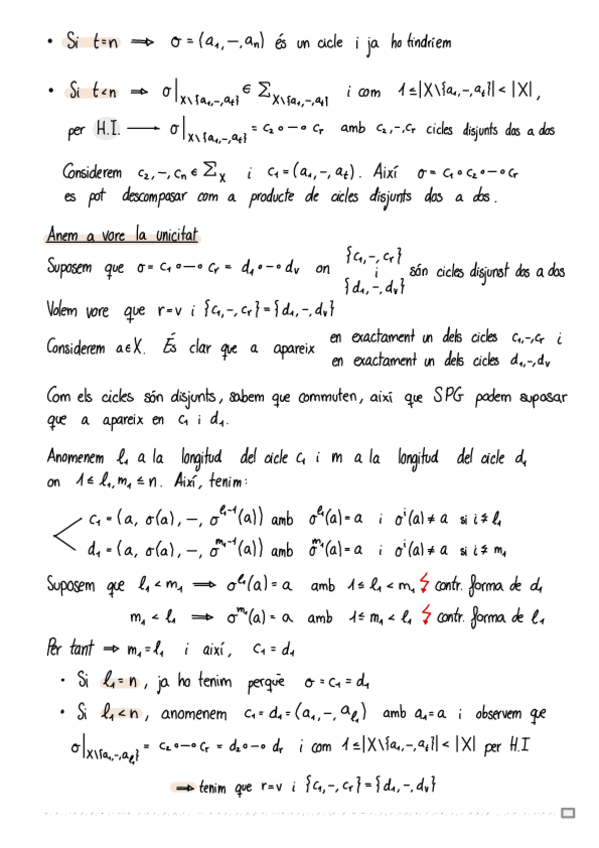 • Si t=n ⟹ σ = (a₁,–,aₙ) és un cicle i ja ho tindriem
• Si t<n ⟹ σ|X\{a₁,–,aₜ} ∈ Σ X\{a₁,–,aₜ} i com 1≤|X\{a₁,–,aₜ}| < |X|,
per H.I. ⟶ σ|X\{a₁,–,aₜ} = c₂∘–∘cᵣ amb c₂,–,cᵣ cicles disjunts dos a dos
Considerem c₂,–,cₙ ∈ Σₓ i c₁ = (a₁,–,aₜ). Així σ = c₁∘c₂∘–∘cᵣ
es pot descompasar com a producte de cicles disjunts dos a dos.
Anem a vore la unicitat
Suposem que σ = c₁∘–∘cᵣ = d₁∘–∘dᵥ on {c₁,–,cᵣ} i {d₁,–,dᵥ} són cicles disjunst dos a dos
Volem vore que r=v i {c₁,–,cᵣ} = {d₁,–,dᵥ}
Considerem a∈X. És clar que a apareix en exactament un dels cicles c₁,–,cᵣ i
en exactament un dels cicles d₁,–,dᵥ
Com els cicles són disjunts, sabem que commuten, així que SPG podem suposar
que a apareix en c₁ i d₁.
Anomenem l₁ a la longitud del cicle c₁ i m a la longitud del cicle d₁
on 1≤l₁,m₁≤n. Així, tenim:
c₁ = (a, σ(a), –, σ^(l₁-1)(a)) amb σ^(l₁)(a) = a i σ^i(a) ≠ a si i≠l₁
d₁ = (a, σ(a), –, σ^(m₁-1)(a)) amb σ^(m₁)(a) = a i σ^i(a) ≠ a si i≠m₁
Suposem que l₁<m₁ ⟹ σ^(l₁)(a) = a amb 1≤l₁<m₁ ↯ contr. forma de d₁
m₁<l₁ ⟹ σ^(m₁)(a) = a amb 1≤m₁<l₁ ↯ contr. forma de l₁
Per tant ⟹ m₁=l₁ i així, c₁ = d₁
• Si l₁=n, ja ho tenim perquè σ = c₁ = d₁
• Si l₁<n, anomenem c₁ = d₁ = (a₁,–,aₗ) amb a₁=a i observem que
σ|X\{a₁,–,aₗ} = c₂∘–∘cᵣ = d₂∘–∘dᵣ i com 1≤|X\{a₁,–,aₜ}| < |X| per H.I
⟹ tenim que r=v i {c₁,–,cᵣ} = {d₁,–,dᵥ}